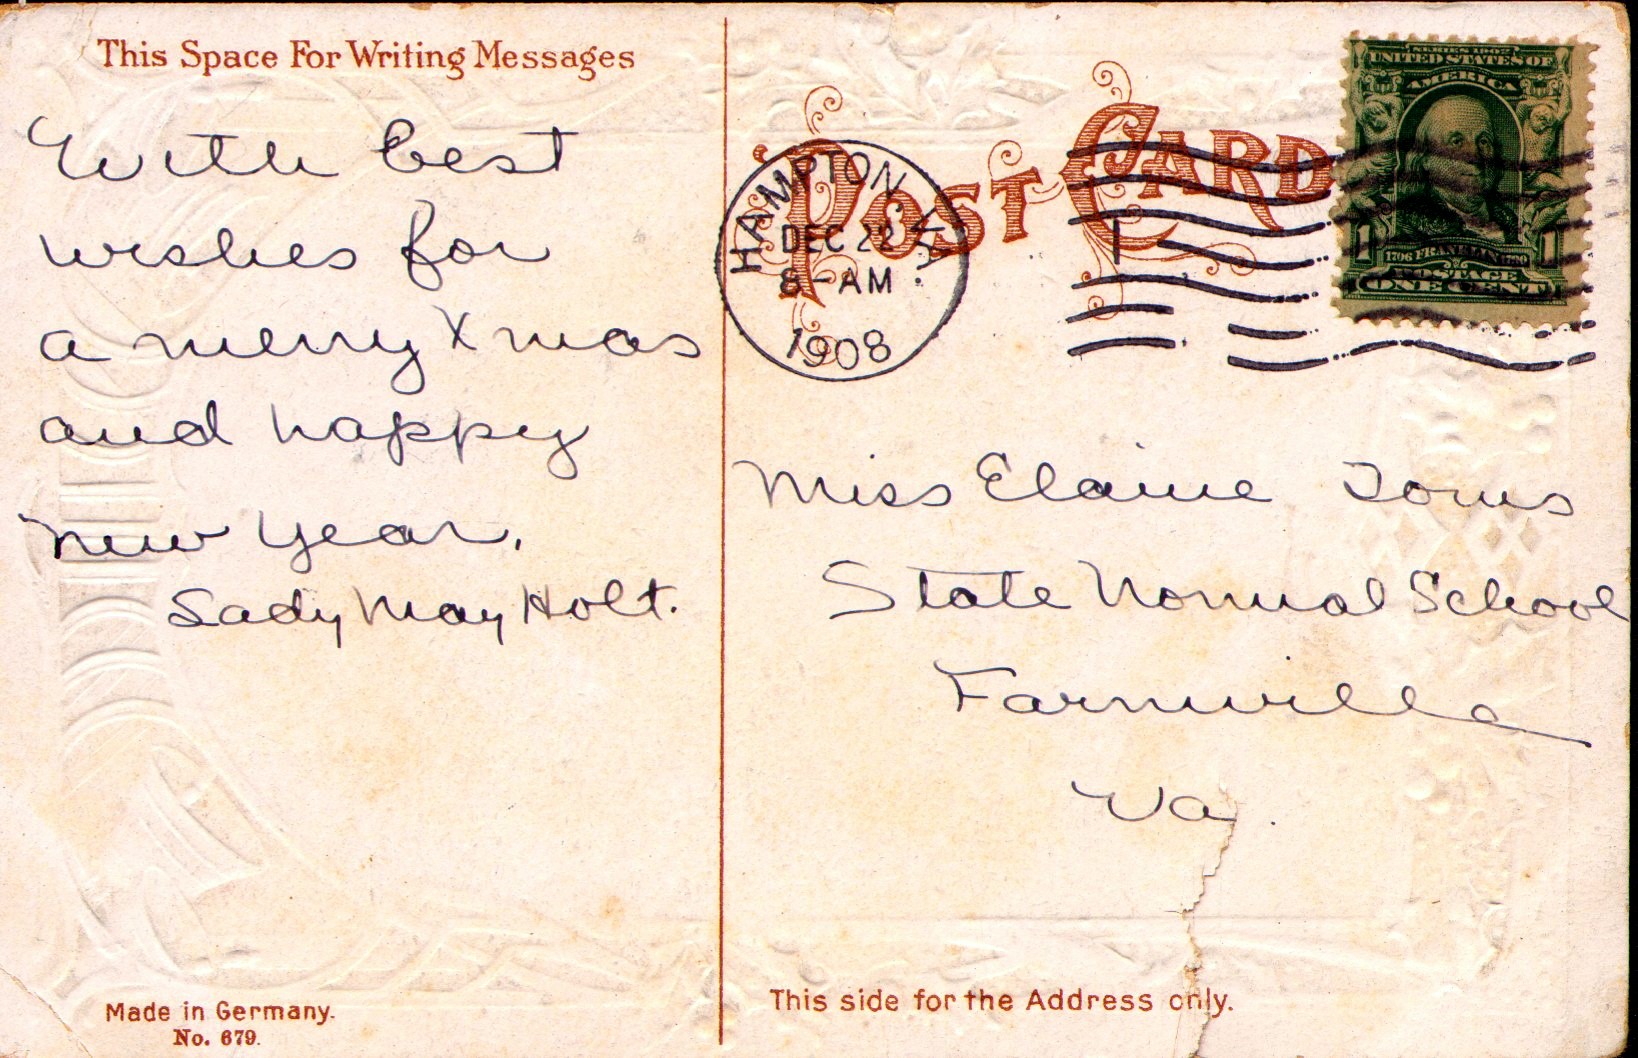 This Space For Writing Messages
With best
wishes for
a merry Xmas
and happy
new year.
Sady May Holt.
Made in Germany.
No. 679.
POST CARD
HAMPTON VA.
DEC 22
8-AM
1908
1
SERIES 1902
UNITED STATES OF
AMERICA
1706 FRANKLIN 1790
1 1
POSTAGE
ONE CENT
Miss Elaine Toms
State Normal School
Farmville
Va.
This side for the Address only.